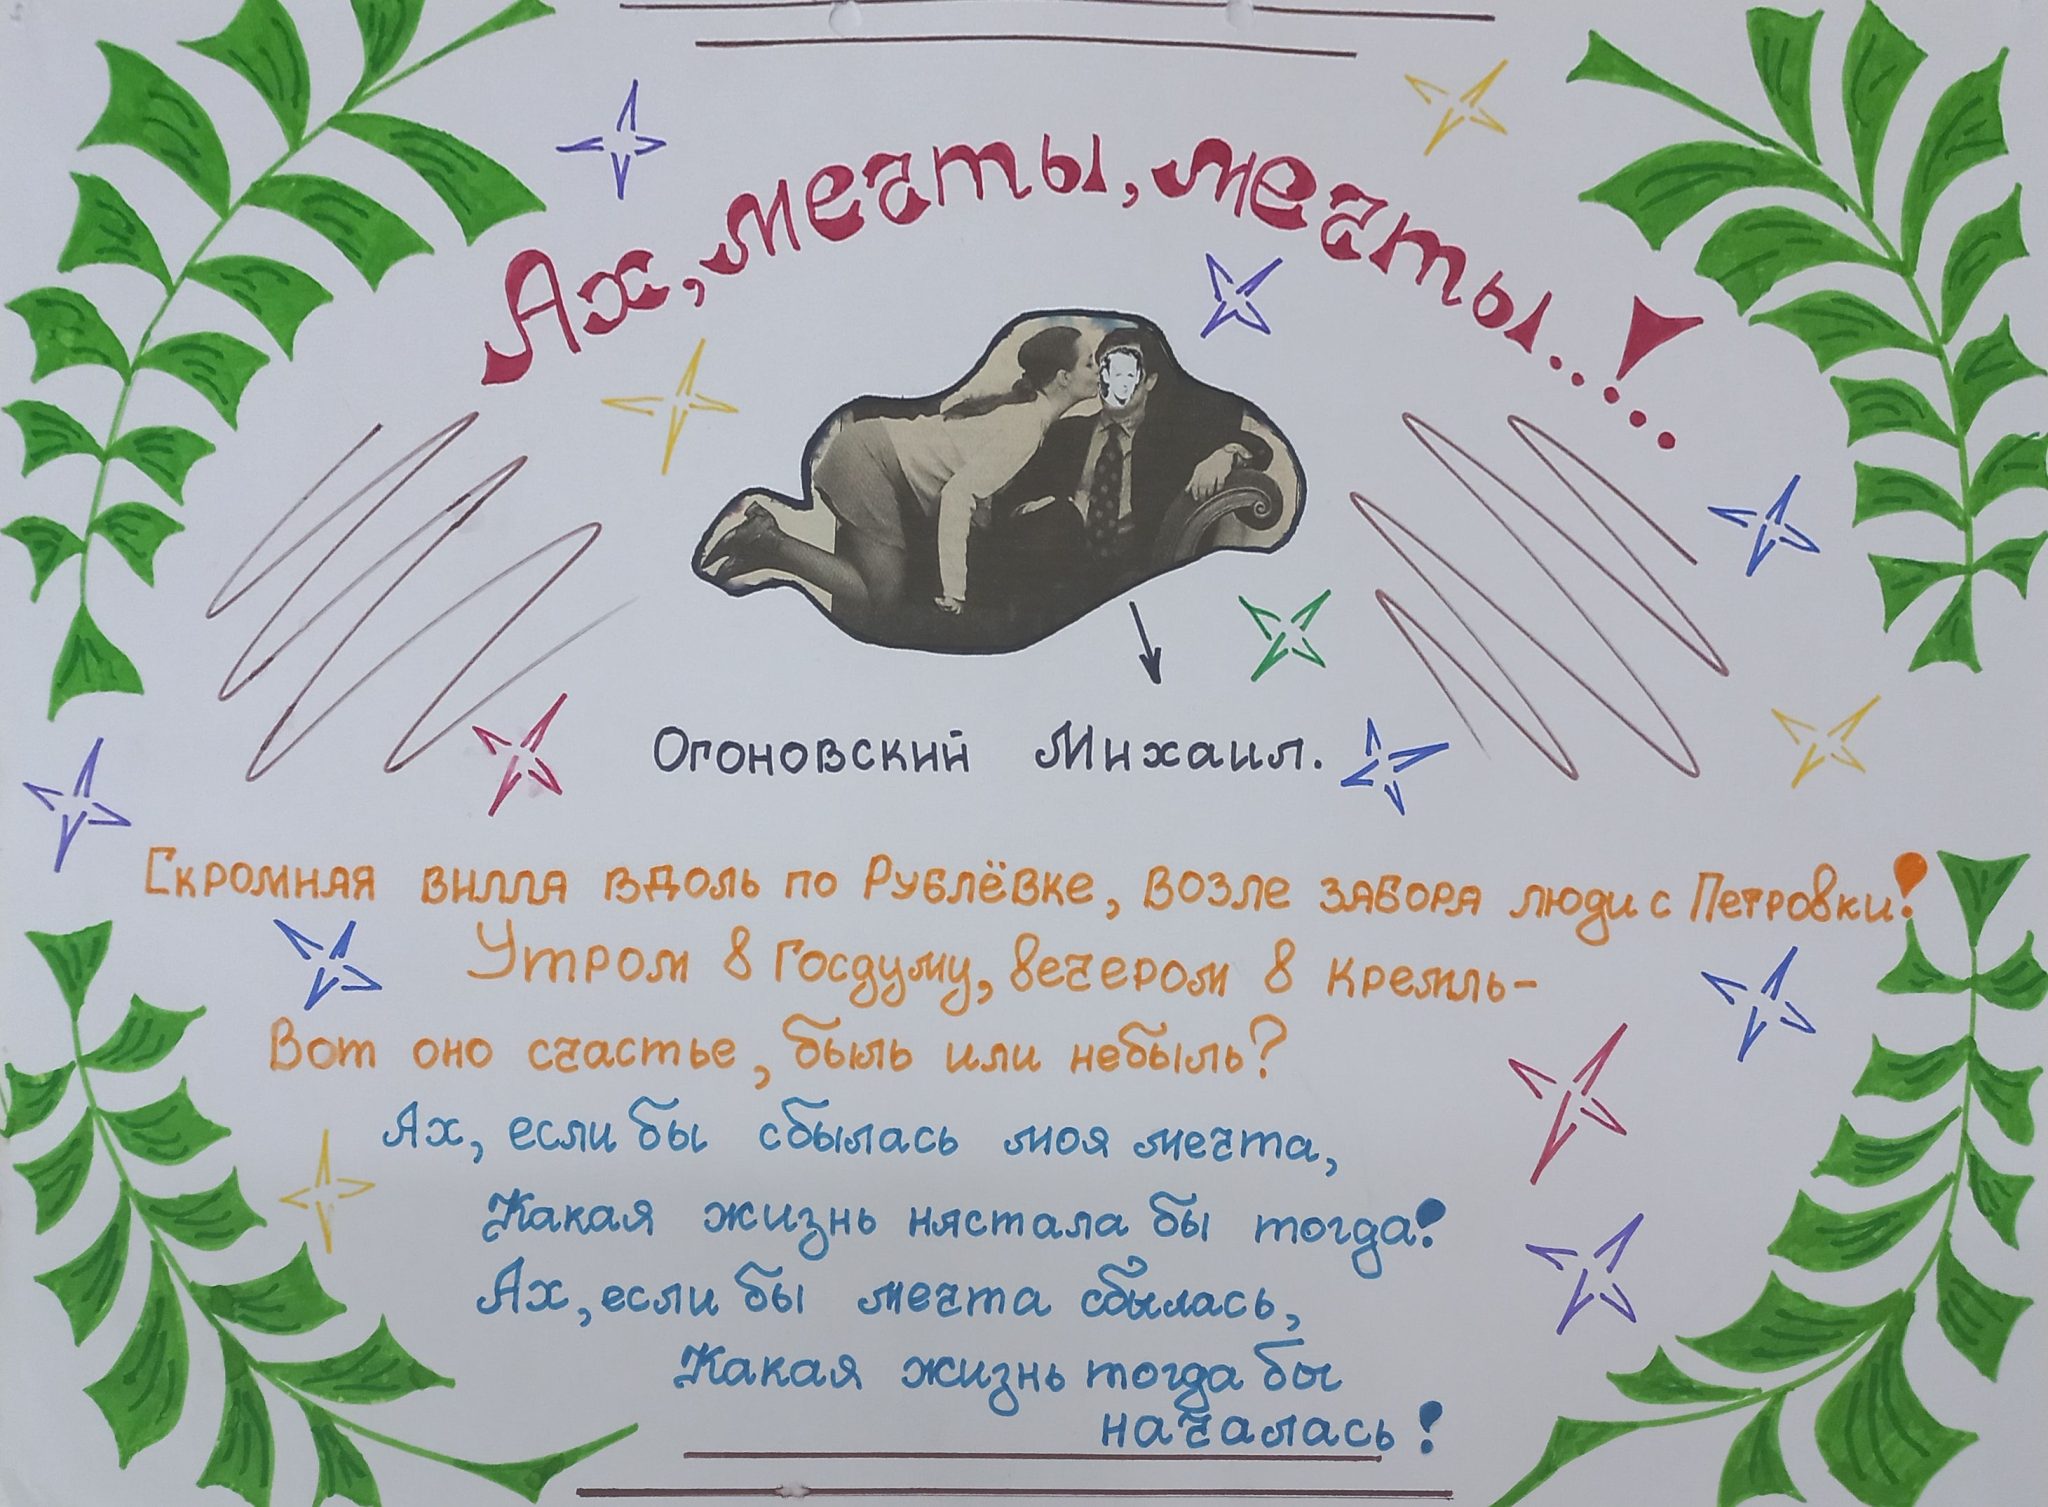 Ах, мечты, мечты...!..
Огоновский Михаил.
Скромная вилла вдоль по Рублёвке, возле забора люди с Петровки!
Утром в Госдуму, вечером в Кремль-
Вот оно счастье, быль или небыль?
Ах, если бы сбылась моя мечта,
Какая жизнь нястала бы тогда!
Ах, если бы мечта сбылась,
Какая жизнь тогда бы
началась!